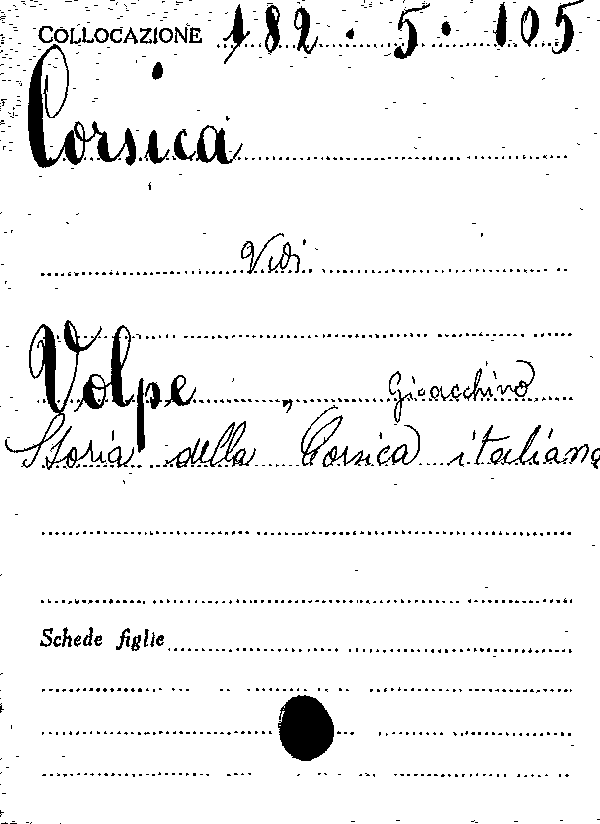 COLLOCAZIONE 182.5.105
Corsica
Vedi
Volpe, Gioacchino
Storia della Corsica italiana
Schede figlie